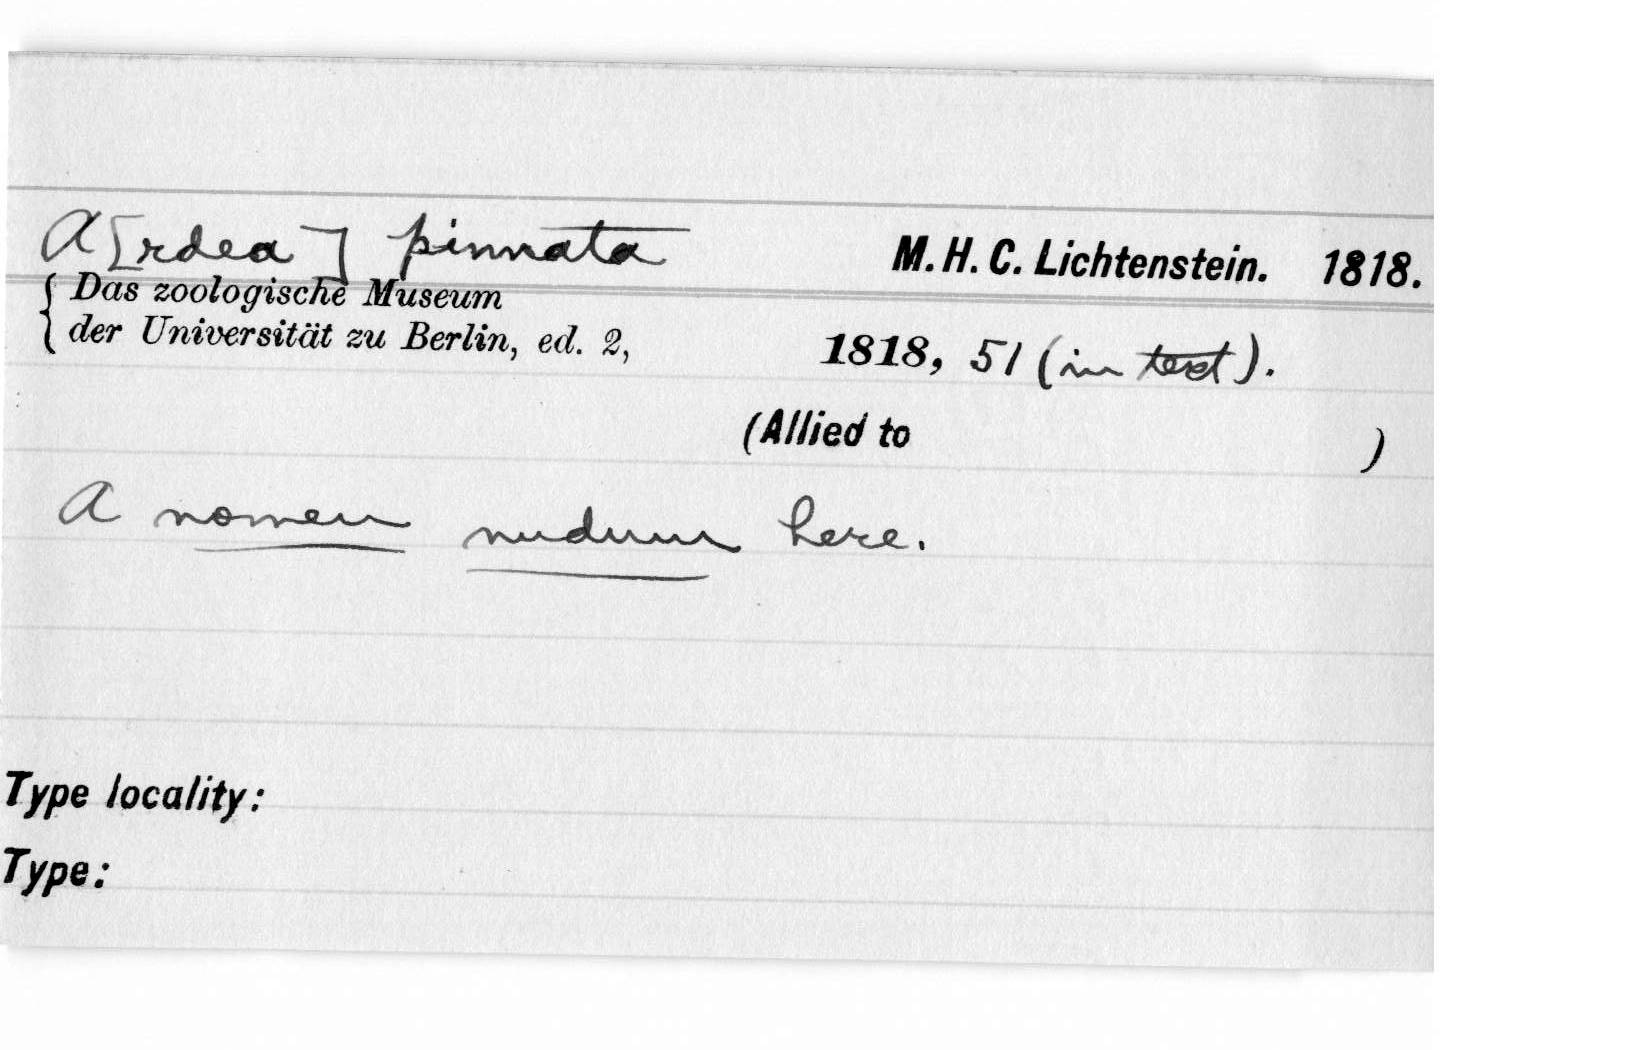 A[rdea] pinnata M. H. C. Lichtenstein. 1818.
{ Das zoologische Museum
der Universität zu Berlin, ed. 2, 1818, 51 (in text).
(Allied to )
A nomen nudum here.
Type locality:
Type: